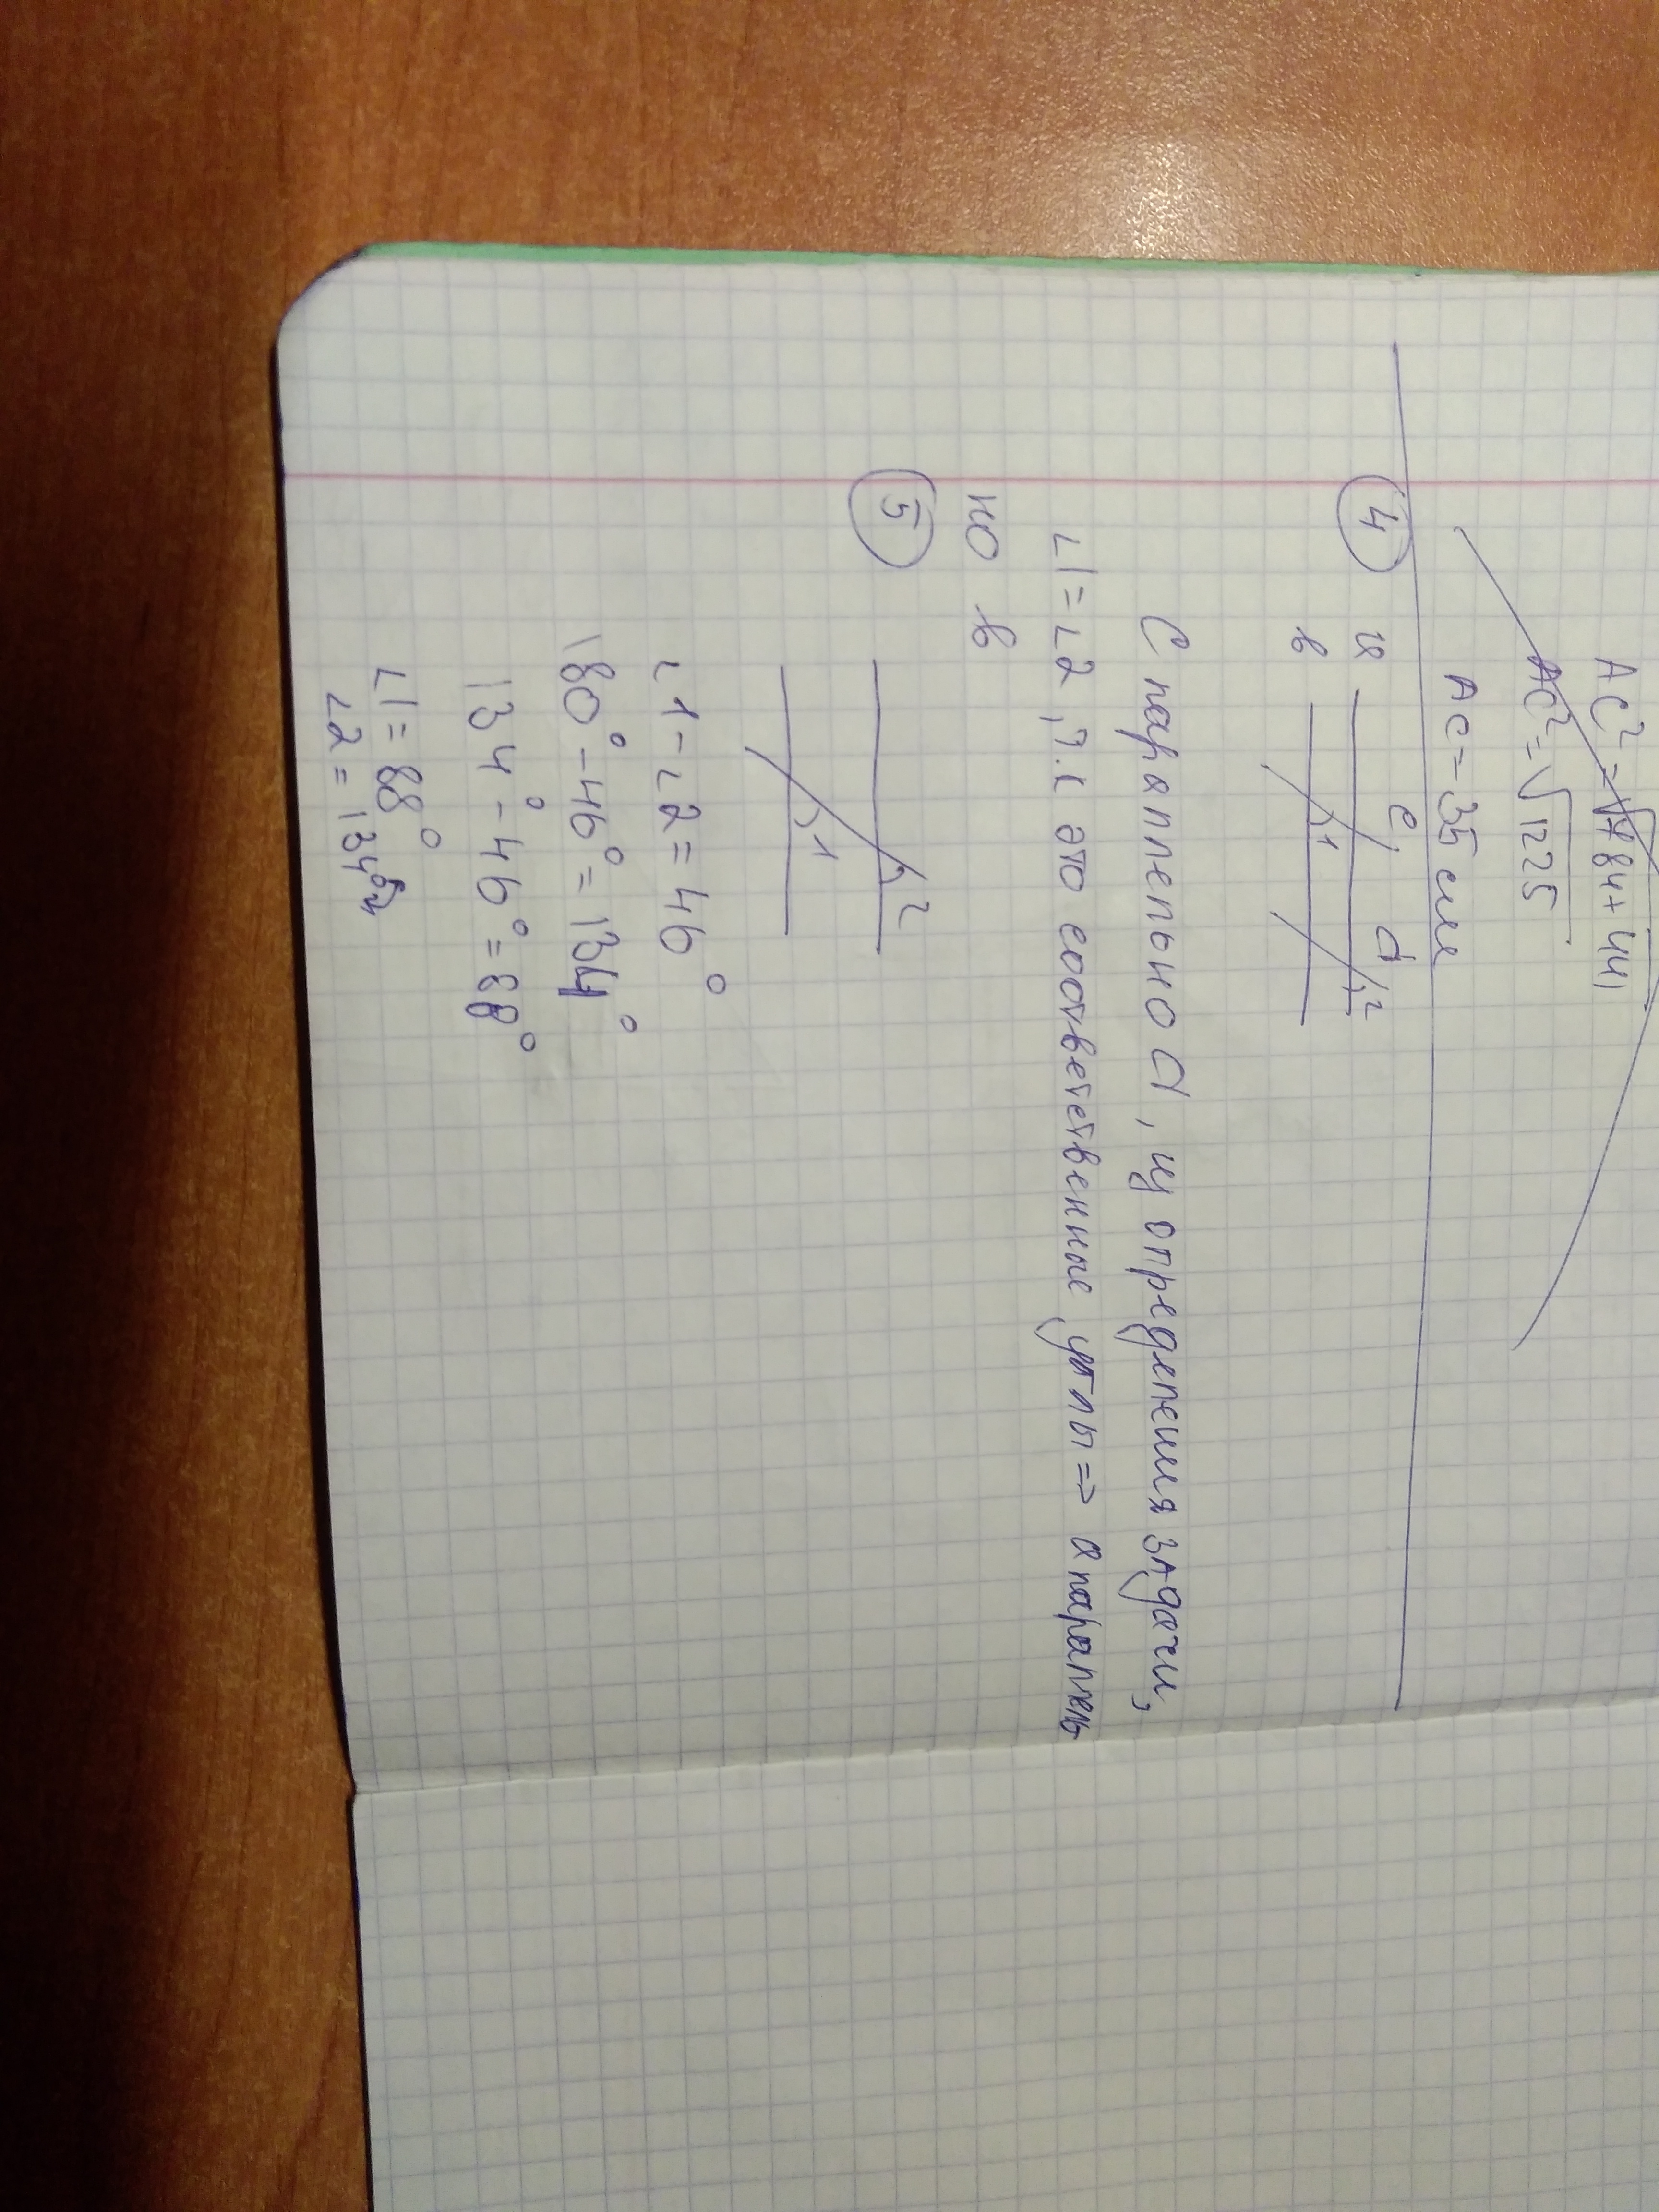 AC² = √784+441
AC² = √1225
AC = 35 см
④ а c d 2
в 1
C параллельно d, из определения задачи,
∠1 = ∠2, т.к это соответственные углы => а параллель
но в
⑤
2
1
∠1 - ∠2 = 46°
180° - 46° = 134°
134° - 46° = 88°
∠1 = 88°
∠2 = 134°